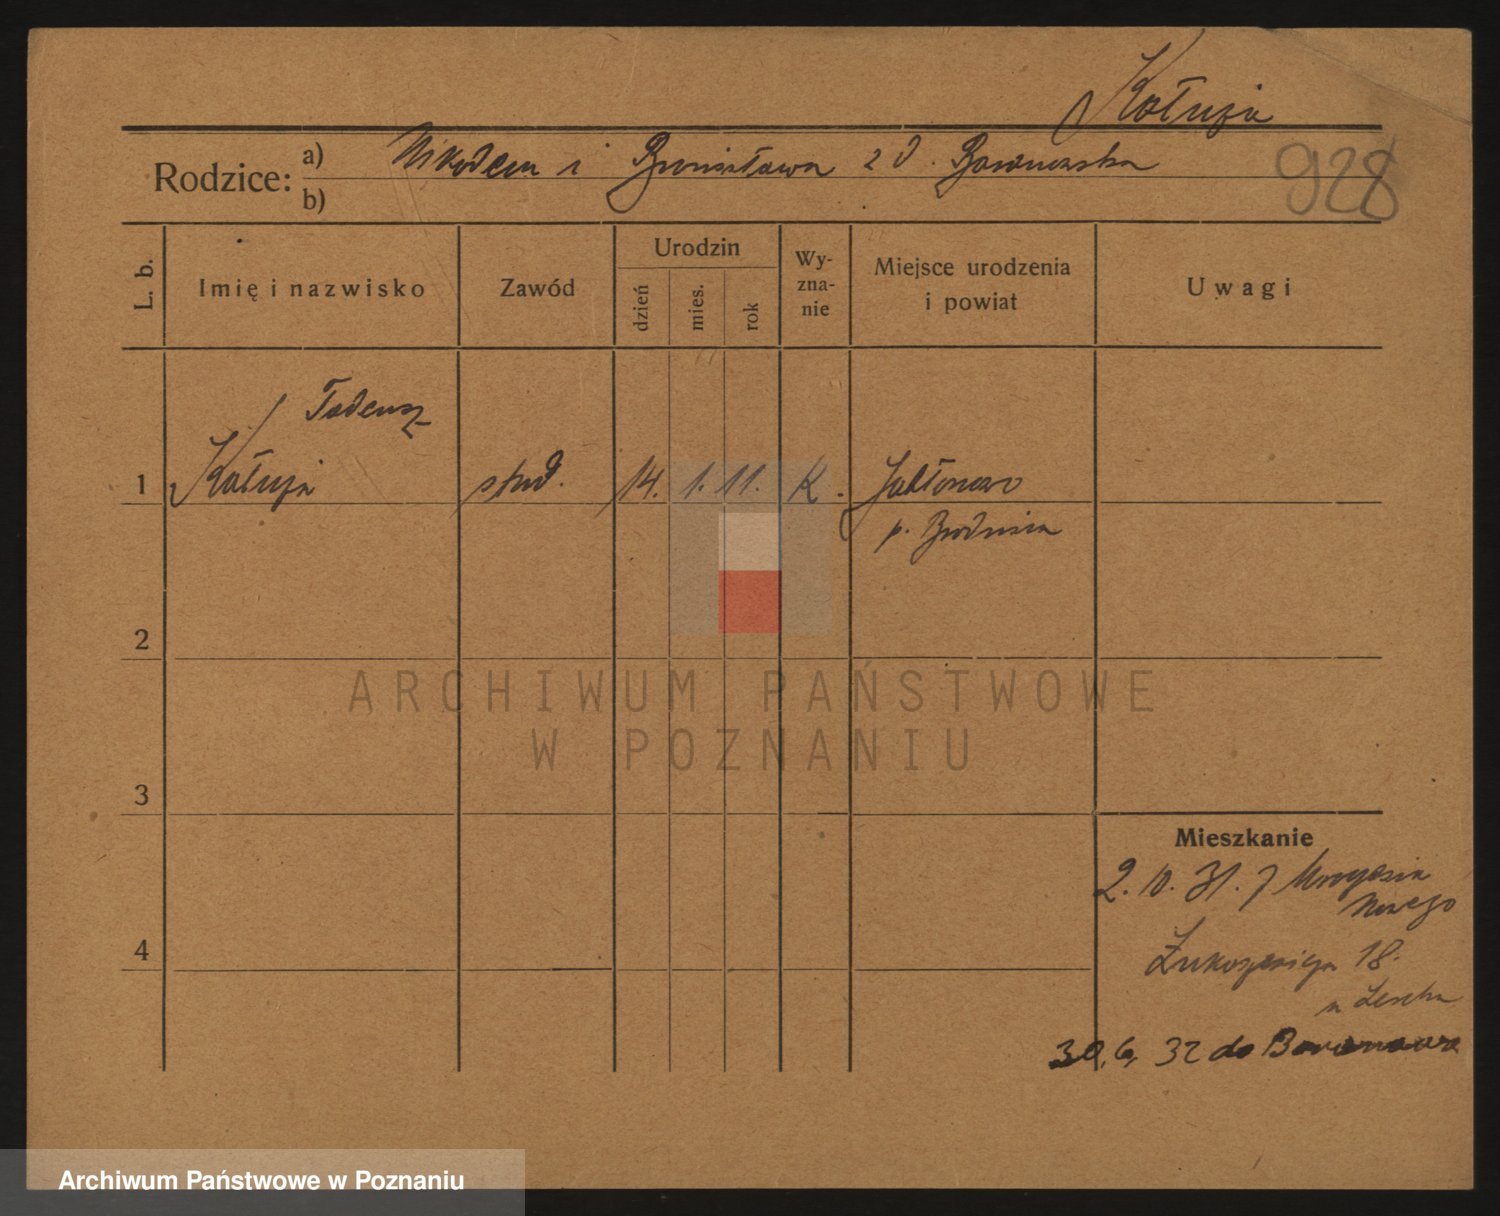 Kałuja
Rodzice: a) Nikodem i Bronisława z d.
b)
928
L. b.
Imię i nazwisko
Zawód
Urodzin
dzień
mies.
rok
Wy-
zna-
nie
Miejsce urodzenia
i powiat
Uwagi
Tadeusz
1 Kałuja stud. 14. 1. 11. K. Jabłonowo
p. Brodnica
2
ARCHIWUM PAŃSTWOWE
W POZNANIU
3
Mieszkanie
2. 10. 31. z
4
18.
u
30. 6. 32 do
Archiwum Państwowe w Poznaniu